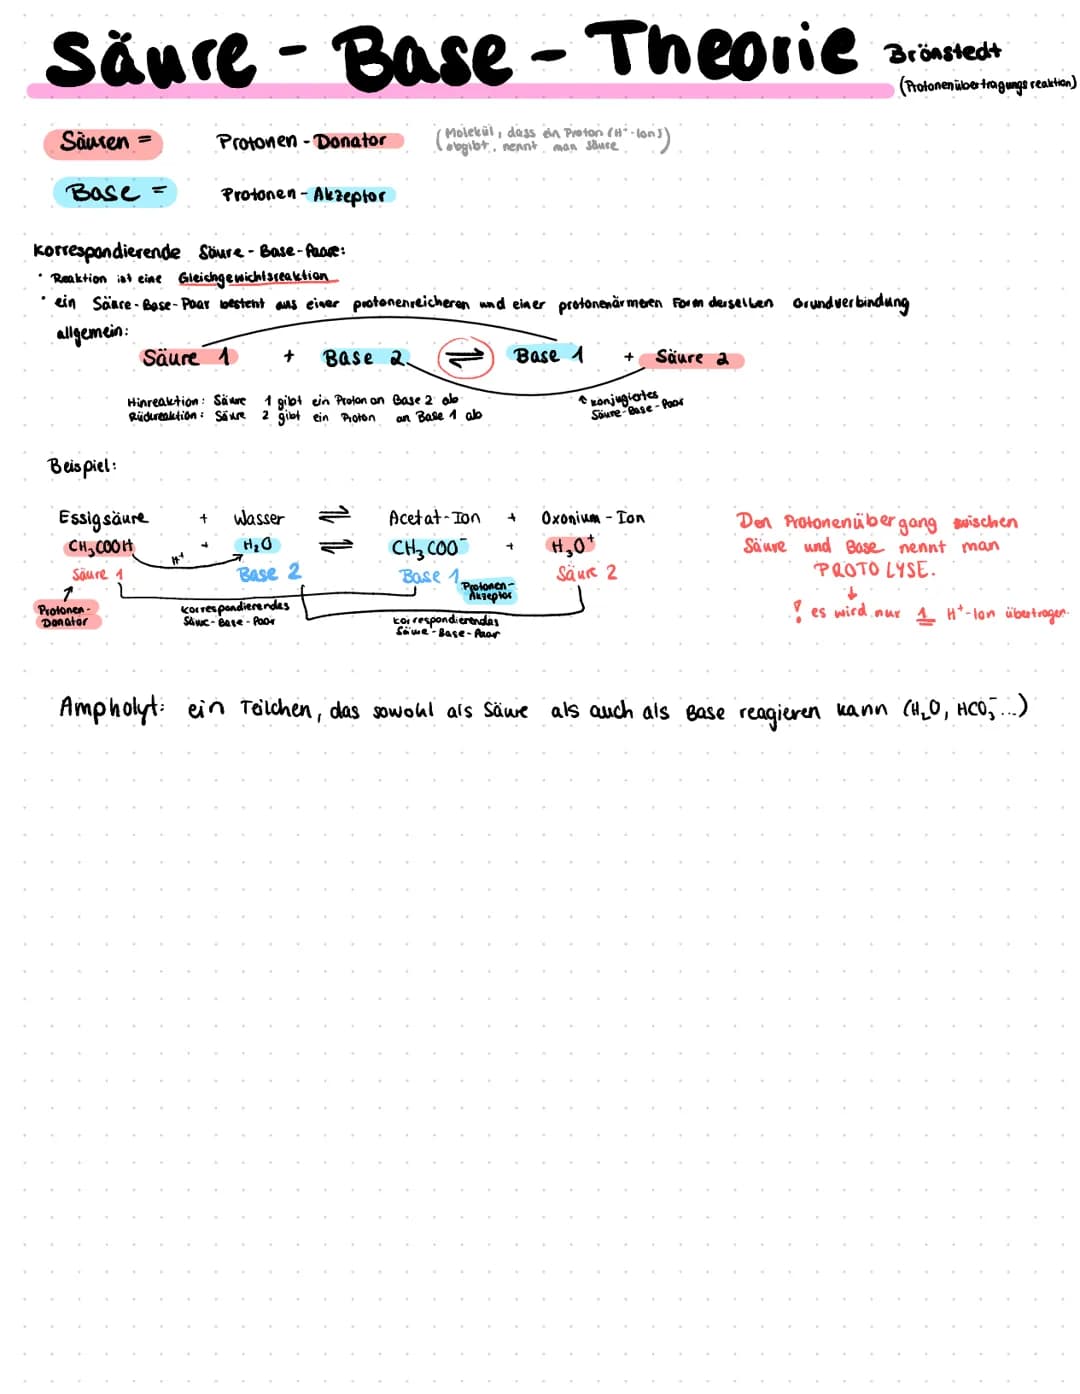 Säure - Base - Theorie Brönstedt
(Protonenübertragungsreaktion)
Säuren = Protonen - Donator (Molekül, dass ein Proton (H⁺-Ions)
abgibt, nennt man Säure)
Base = Protonen - Akzeptor
Korrespondierende Säure - Base - Paare:
• Reaktion ist eine Gleichgewichtsreaktion
• ein Säure - Base - Paar besteht aus einer protonenreicheren und einer protonenärmeren Form derselben Grundverbindung
allgemein:
Säure 1 + Base 2 ⇌ Base 1 + Säure 2
Hinreaktion: Säure 1 gibt ein Proton an Base 2 ab
Rückreaktion: Säure 2 gibt ein Proton an Base 1 ab
konjugiertes
Säure-Base-Paar
Beispiel:
Essigsäure + Wasser ⇌ Acetat-Ion + Oxonium-Ion
CH₃COOH + H₂O ⇌ CH₃COO⁻ + H₃O⁺
H⁺
Säure 1 Base 2 Base 1 Säure 2
Protonen-
Akzeptor
Protonen-
Donator
korrespondierendes
Säure-Base-Paar
korrespondierendes
Säure-Base-Paar
Den Protonenübergang zwischen
Säure und Base nennt man
PROTOLYSE.
↓
! es wird nur 1 H⁺-Ion übertragen.
Ampholyt: ein Teilchen, das sowohl als Säure als auch als Base reagieren kann (H₂O, HCO₃⁻...)